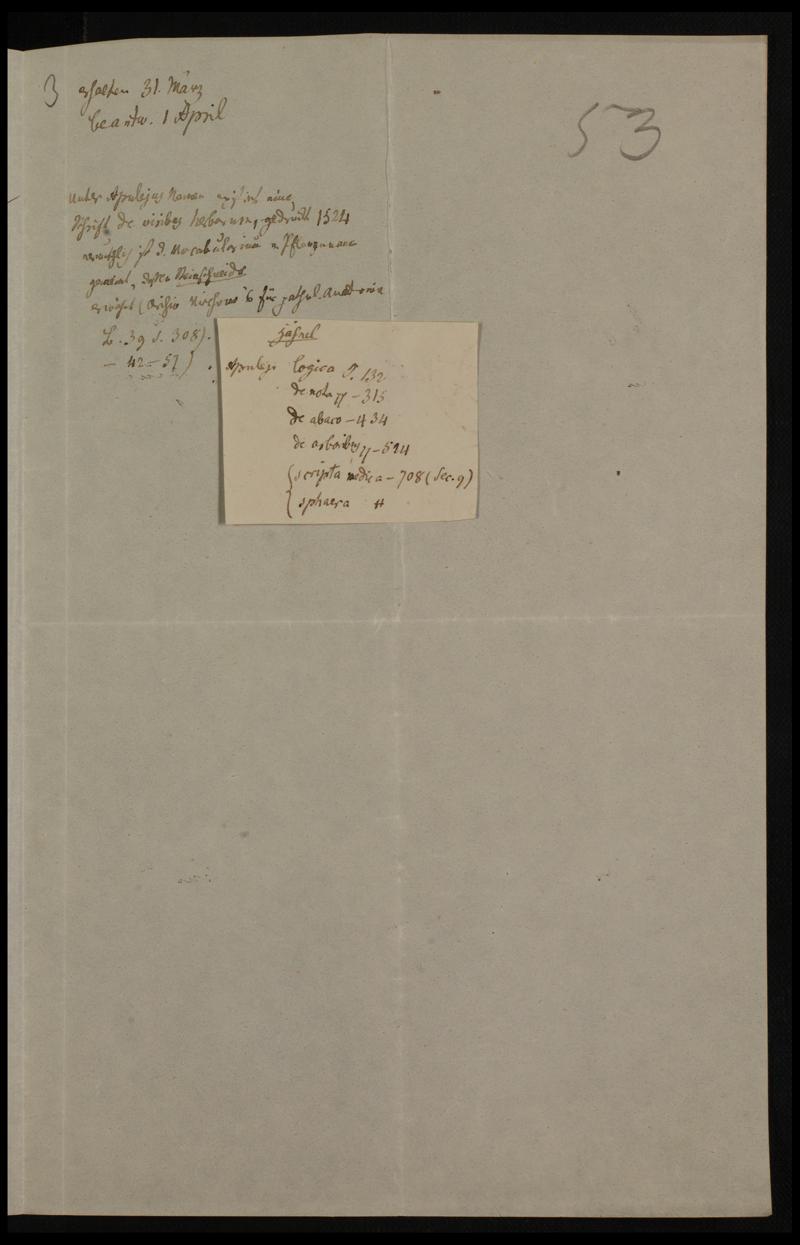 3 erhalten 31. März
beantw. 1 April
53
Unter Apulejus Namen existirt eine
Schrift de viribus herbarum, gedruckt 1524
vermuthlich ist d. Vocabularium v. Pflanzennamen
gemeint, dessen Steinschneider
erwähnt (Archiv Virchow's für pathol. Anatomie
B. 39 S. 308).
— 42 = 51)
Hähnel
Apuleji Logica P. 132
de nota — 315
de abaco — 434
de arboribus — 524
scripta medica — 708 (Sec. 9)
sphaera